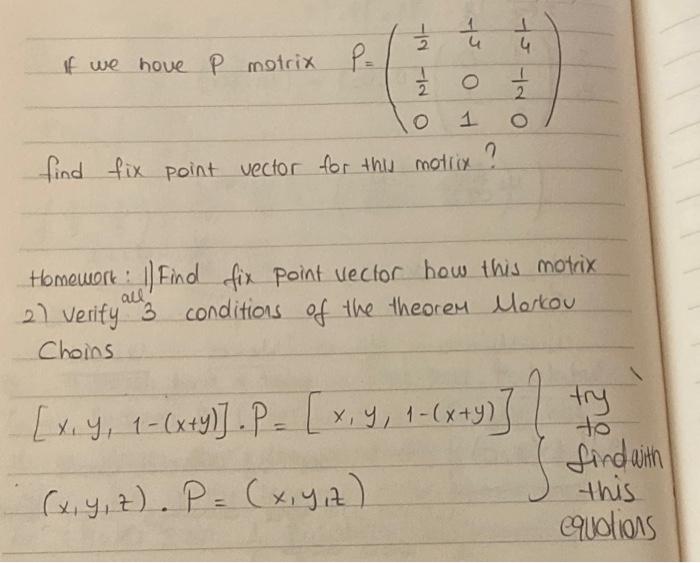 If we have P matrix P= ( 1/2 1/4 1/4
1/2 0 1/2
0 1 0 )
find fix point vector for this matrix ?
Homework : 1) Find fix point vector how this matrix
2) verify all 3 conditions of the theorem Markov
Chains
[x, y, 1-(x+y)] . P = [x, y, 1-(x+y)] } try
to
find with
(x, y, z) . P = (x, y, z) this
equations